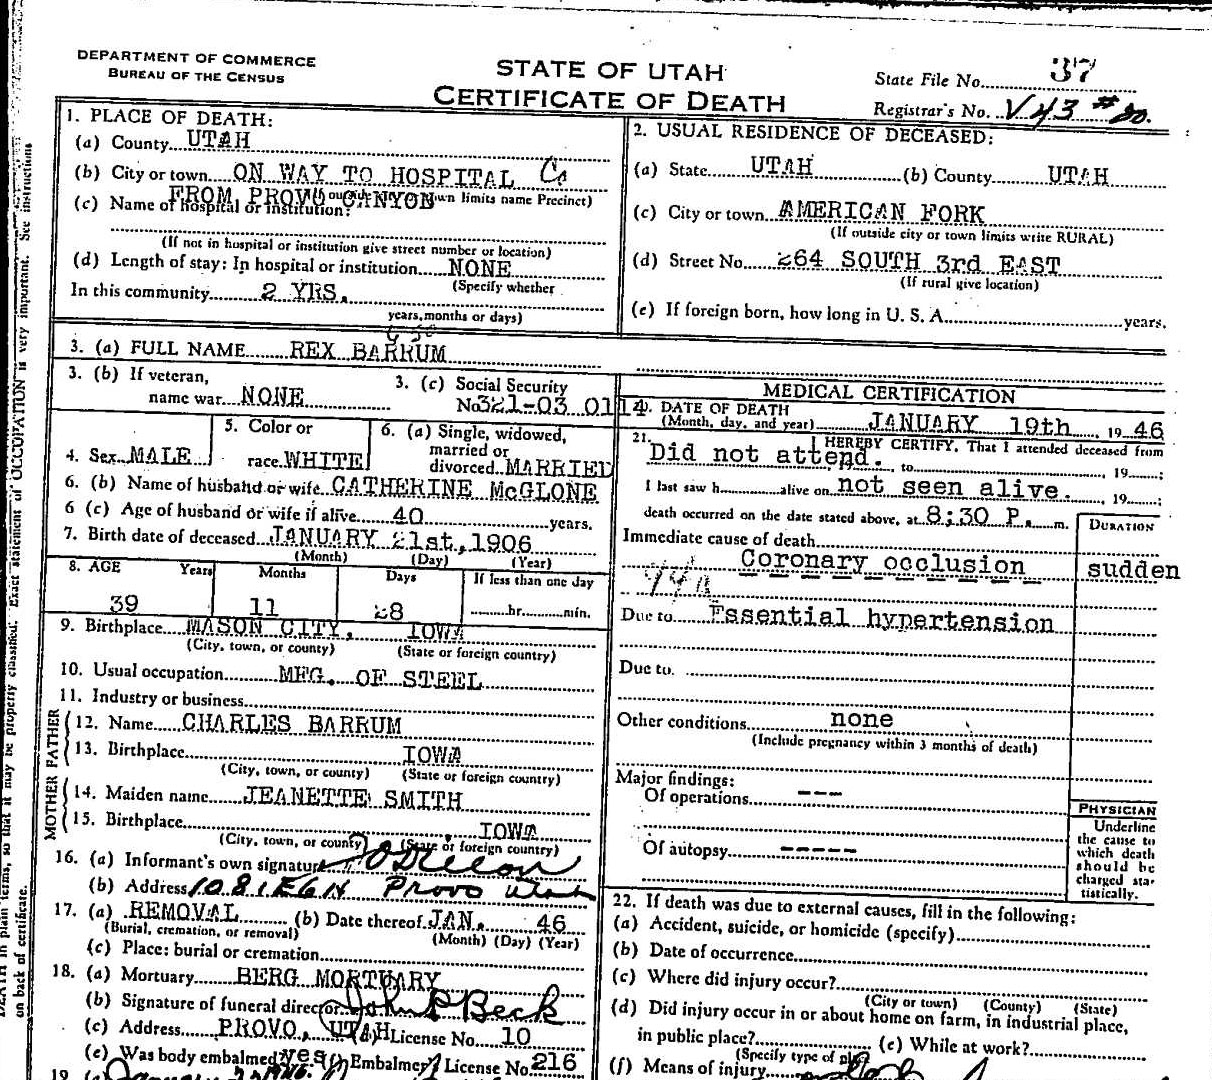 DEPARTMENT OF COMMERCE
BUREAU OF THE CENSUS
STATE OF UTAH
CERTIFICATE OF DEATH
State File No. 37
Registrar's No. V43 #20.
1. PLACE OF DEATH:
(a) County UTAH
(b) City or town ON WAY TO HOSPITAL Co
FROM PROVO CANYON own limits name Precinct)
(c) Name of hospital or institution:
(If not in hospital or institution give street number or location)
(d) Length of stay: In hospital or institution NONE
(Specify whether
In this community 2 YRS.
years, months or days)
2. USUAL RESIDENCE OF DECEASED:
(a) State UTAH (b) County UTAH
(c) City or town AMERICAN FORK
(If outside city or town limits write RURAL)
(d) Street No. 264 SOUTH 3rd EAST
(If rural give location)
(e) If foreign born, how long in U. S. A. years.
3. (a) FULL NAME REX BARRUM
3. (b) If veteran,
name war NONE
3. (c) Social Security
No. 321-03 0114
4. Sex MALE
5. Color or
race WHITE
6. (a) Single, widowed,
married or
divorced MARRIED
6. (b) Name of husband or wife CATHERINE McGLONE
6 (c) Age of husband or wife if alive 40 years.
7. Birth date of deceased JANUARY 21st, 1906
(Month) (Day) (Year)
8. AGE Years Months Days If less than one day
39 11 28 hr. min.
9. Birthplace MASON CITY, IOWA
(City, town, or county) (State or foreign country)
10. Usual occupation MFG. OF STEEL
11. Industry or business
FATHER
12. Name CHARLES BARRUM
13. Birthplace IOWA
(City, town, or county) (State or foreign country)
MOTHER
14. Maiden name JEANETTE SMITH
15. Birthplace IOWA
(City, town, or county) (State or foreign country)
16. (a) Informant's own signature
(b) Address 1081 E 6 N Provo Utah
17. (a) REMOVAL (b) Date thereof JAN. 46
(Burial, cremation, or removal) (Month) (Day) (Year)
(c) Place: burial or cremation
18. (a) Mortuary BERG MORTUARY
(b) Signature of funeral director John P Beck
(c) Address PROVO, UTAH License No. 10
(e) Was body embalmed? yes Embalmer License No. 216
19. (a) January
MEDICAL CERTIFICATION
DATE OF DEATH
(Month, day, and year) JANUARY 19th, 19 46
21. I HEREBY CERTIFY, That I attended deceased from
Did not attend. to 19 ;
I last saw h alive on not seen alive. 19 ;
death occurred on the date stated above, at 8:30 P. m.
DURATION
Immediate cause of death
Coronary occlusion sudden
Due to Essential hypertension
Due to.
Other conditions none
(Include pregnancy within 3 months of death)
Major findings:
Of operations ---
Of autopsy -----
PHYSICIAN
Underline
the cause to
which death
should be
charged sta-
tistically.
22. If death was due to external causes, fill in the following:
(a) Accident, suicide, or homicide (specify)
(b) Date of occurrence
(c) Where did injury occur?
(City or town) (County) (State)
(d) Did injury occur in or about home on farm, in industrial place,
in public place? (e) While at work?
(Specify type of place)
(f) Means of injury
in plain terms, so that it may be properly classified. Exact statement of OCCUPATION is very important. See instructions
on back of certificate.